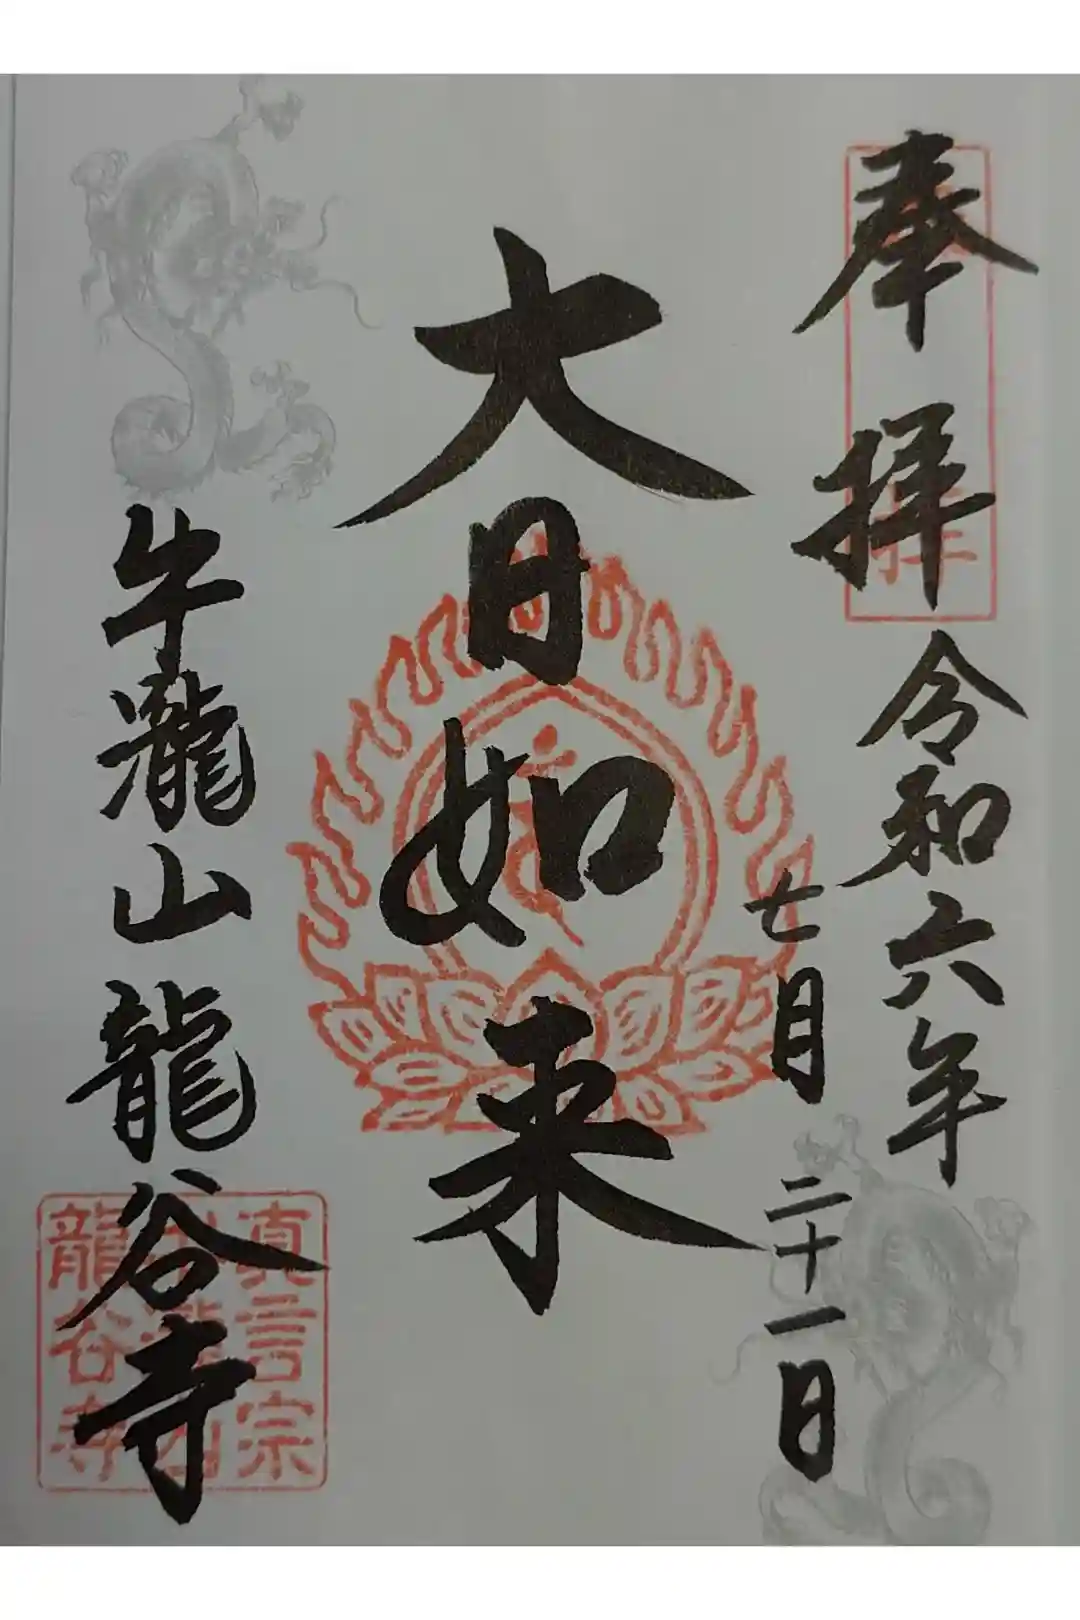 奉拝
令和六年
七月二十一日
大日如来
牛瀧山龍谷寺
真言宗
牛瀧山
龍谷寺